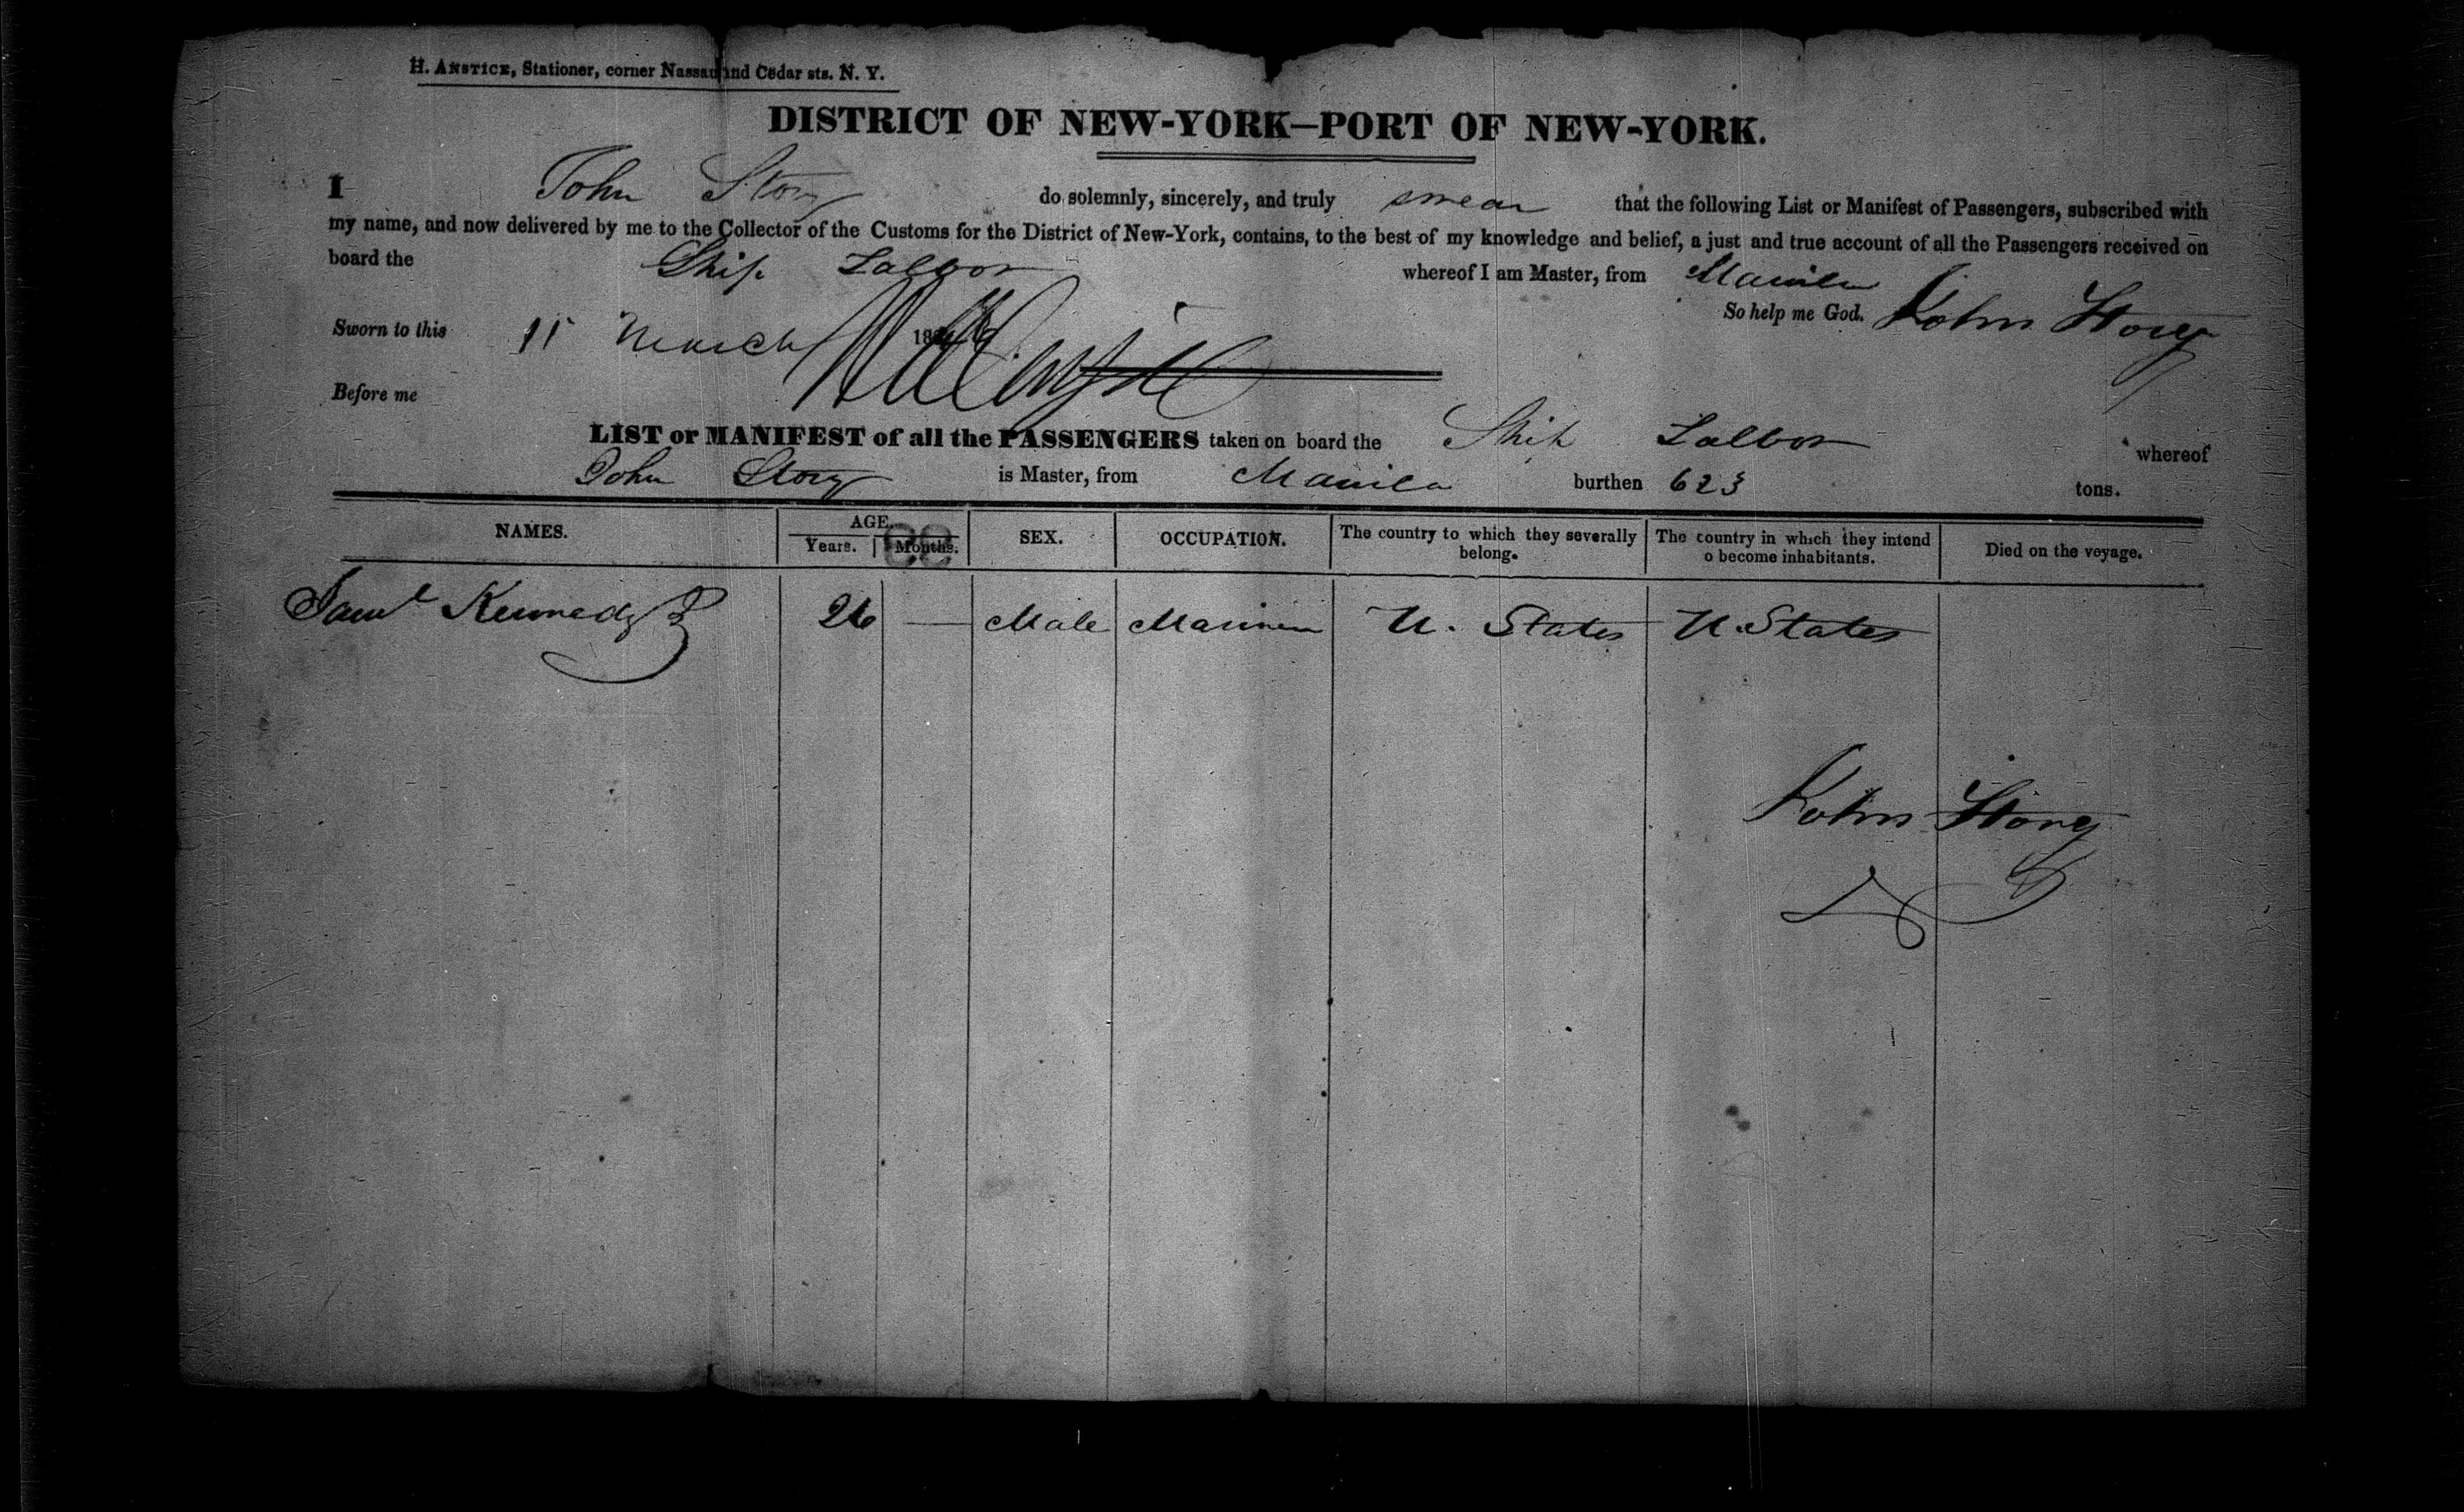 H. ANSTICE, Stationer, corner Nassau and Cedar sts. N. Y.
DISTRICT OF NEW-YORK—PORT OF NEW-YORK.
I John Story do solemnly, sincerely, and truly swear that the following List or Manifest of Passengers, subscribed with
my name, and now delivered by me to the Collector of the Customs for the District of New-York, contains, to the best of my knowledge and belief, a just and true account of all the Passengers received on
board the Ship Talbot whereof I am Master, from Manila
So help me God. John Story
Sworn to this 11 March
Before me
LIST or MANIFEST of all the PASSENGERS taken on board the Ship Talbot whereof
John Story is Master, from Manila burthen 623 tons.
NAMES. AGE. SEX. OCCUPATION. The country to which they severally belong. The country in which they intend o become inhabitants. Died on the voyage.
Years. Months.
Saml Kennedy 26 — Male Mariner U. States U. States
John Story